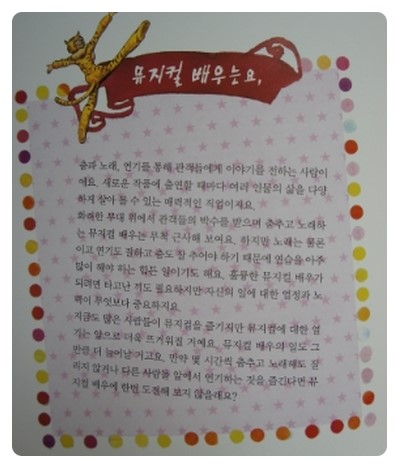 뮤지컬 배우는요,
춤과 노래, 연기를 통해 관객들에게 이야기를 전하는 사람이
에요. 새로운 작품에 출연할 때마다 여러 인물의 삶을 다양
하게 살아 볼 수 있는 매력적인 직업이지요.
화려한 무대 위에서 관객들의 박수를 받으며 춤추고 노래하
는 뮤지컬 배우는 무척 근사해 보여요. 하지만 노래는 물론
이고 연기도 잘하고 춤도 잘 추어야 하기 때문에 연습을 아주
많이 해야 하는 힘든 일이기도 해요. 훌륭한 뮤지컬 배우가
되려면 타고난 끼도 필요하지만 자신의 일에 대한 열정과 노
력이 무엇보다 중요하지요.
지금도 많은 사람들이 뮤지컬을 즐기지만 뮤지컬에 대한 열
기는 앞으로 더욱 뜨거워질 거예요. 뮤지컬 배우의 일도 그
만큼 더 늘어날 거고요. 만약 몇 시간씩 춤추고 노래해도 질
리지 않거나 다른 사람들 앞에서 연기하는 것을 즐긴다면 뮤
지컬 배우에 한번 도전해 보지 않을래요?